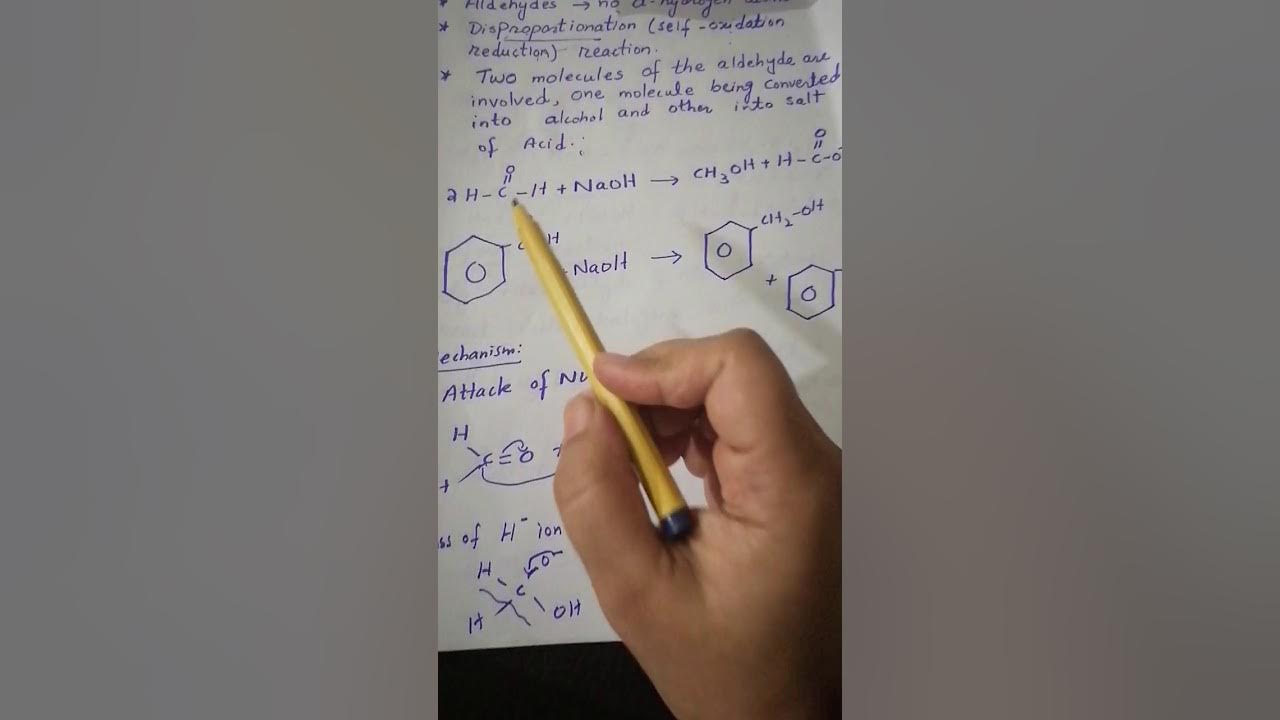 * Aldehydes → no α-hydrogen
* Disproportionation (self-oxidation
reduction) reaction.
* Two molecules of the aldehyde are
involved, one molecule being converted
into alcohol and other into salt
of Acid.:
O
2 H-C-H + NaOH → CH3OH + H-C-O
O
H
NaOH → CH2-OH
+
echanism:
Attack of Nu
H
C=O +
ss of H⁻ ion
H C O⁻
H OH